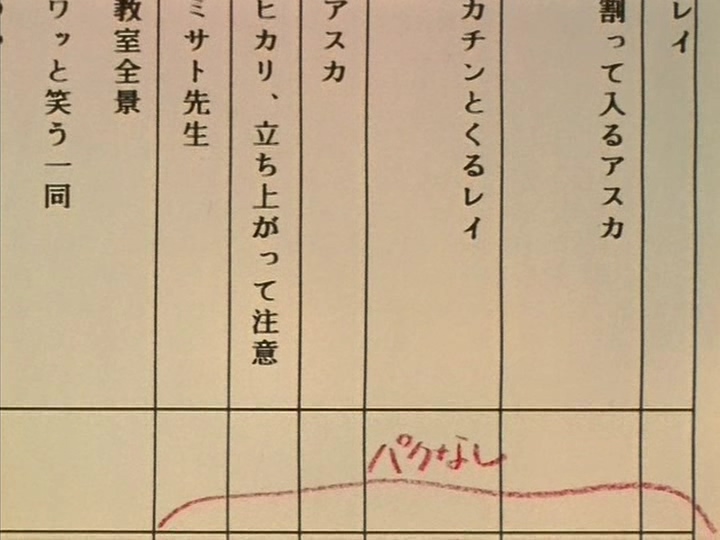 レイ
割って入るアスカ
カチンとくるレイ
アスカ
ヒカリ、立ち上がって注意
ミサト先生
教室全景
ワッと笑う一同
パクなし